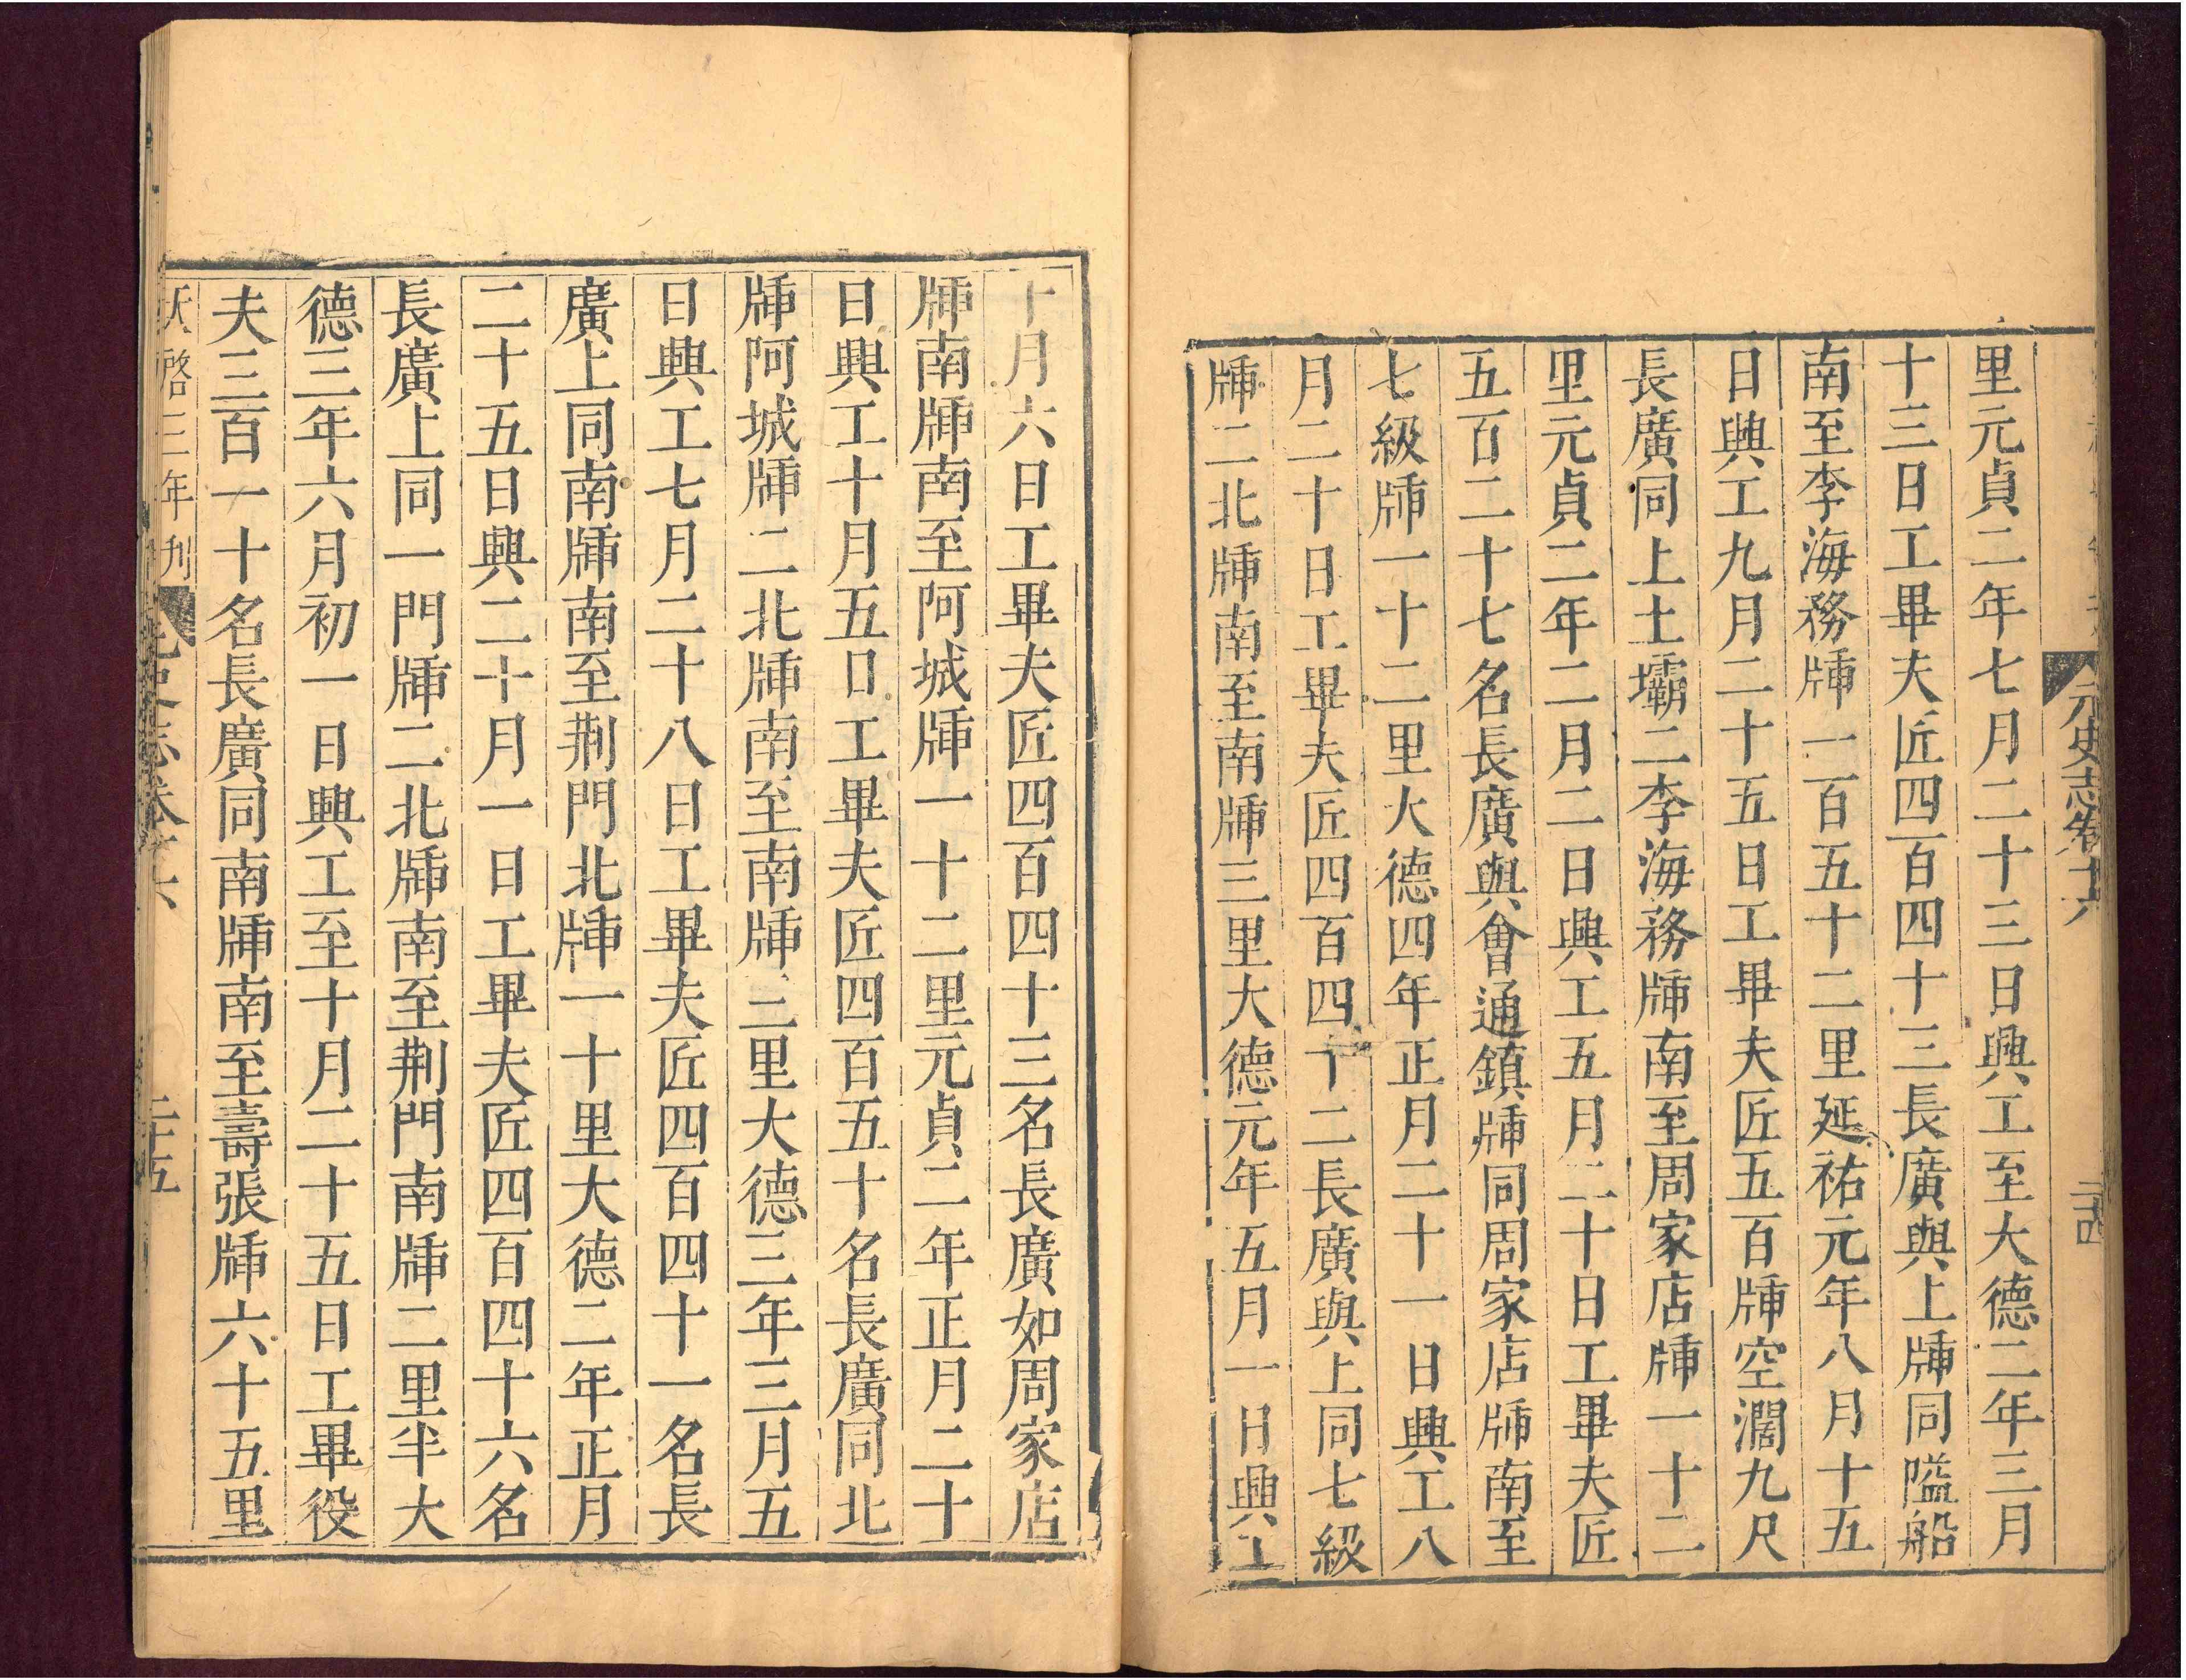 元史志卷十六
二十四
里元貞二年七月二十三日興工至大德二年三月
十三日工畢夫匠四百四十三長廣與上牐同隘船
南至李海務牐一百五十二里延祐元年八月十五
日興工九月二十五日工畢夫匠五百牐空濶九尺
長廣同上土壩二李海務牐南至周家店牐一十二
里元貞二年二月二日興工五月二十日工畢夫匠
五百二十七名長廣與會通鎮牐同周家店牐南至
七級牐一十二里大德四年正月二十一日興工八
月二十日工畢夫匠四百四十二長廣與上同七級
牐二北牐南至南牐三里大德元年五月一日興工
十月六日工畢夫匠四百四十三名長廣如周家店
牐南牐南至阿城牐一十二里元貞二年正月二十
日興工十月五日工畢夫匠四百五十名長廣同北
牐阿城牐二北牐南至南牐三里大德三年三月五
日興工七月二十八日工畢夫匠四百四十一名長
廣上同南牐南至荆門北牐一十里大德二年正月
二十五日興二十月一日工畢夫匠四百四十六名
長廣上同一門牐二北牐南至荆門南牐二里半大
德三年六月初一日興工至十月二十五日工畢役
夫三百一十名長廣同南牐南至壽張牐六十五里
啓三年刊
史志卷十六
二十五